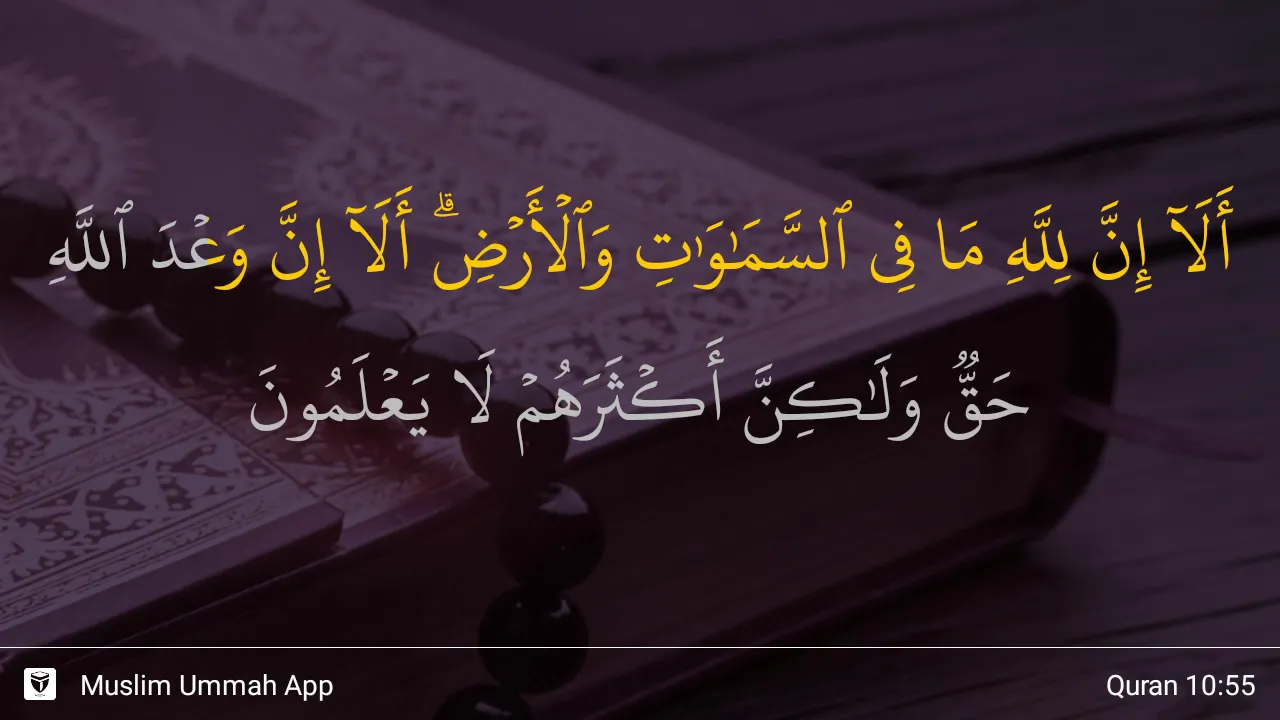 أَلَآ إِنَّ لِلَّهِ مَا فِى ٱلسَّمَـٰوَٰتِ وَٱلْأَرْضِ ۗ أَلَآ إِنَّ وَعْدَ ٱللَّهِ
حَقٌّۭ وَلَـٰكِنَّ أَكْثَرَهُمْ لَا يَعْلَمُونَ
Muslim Ummah App
Quran 10:55